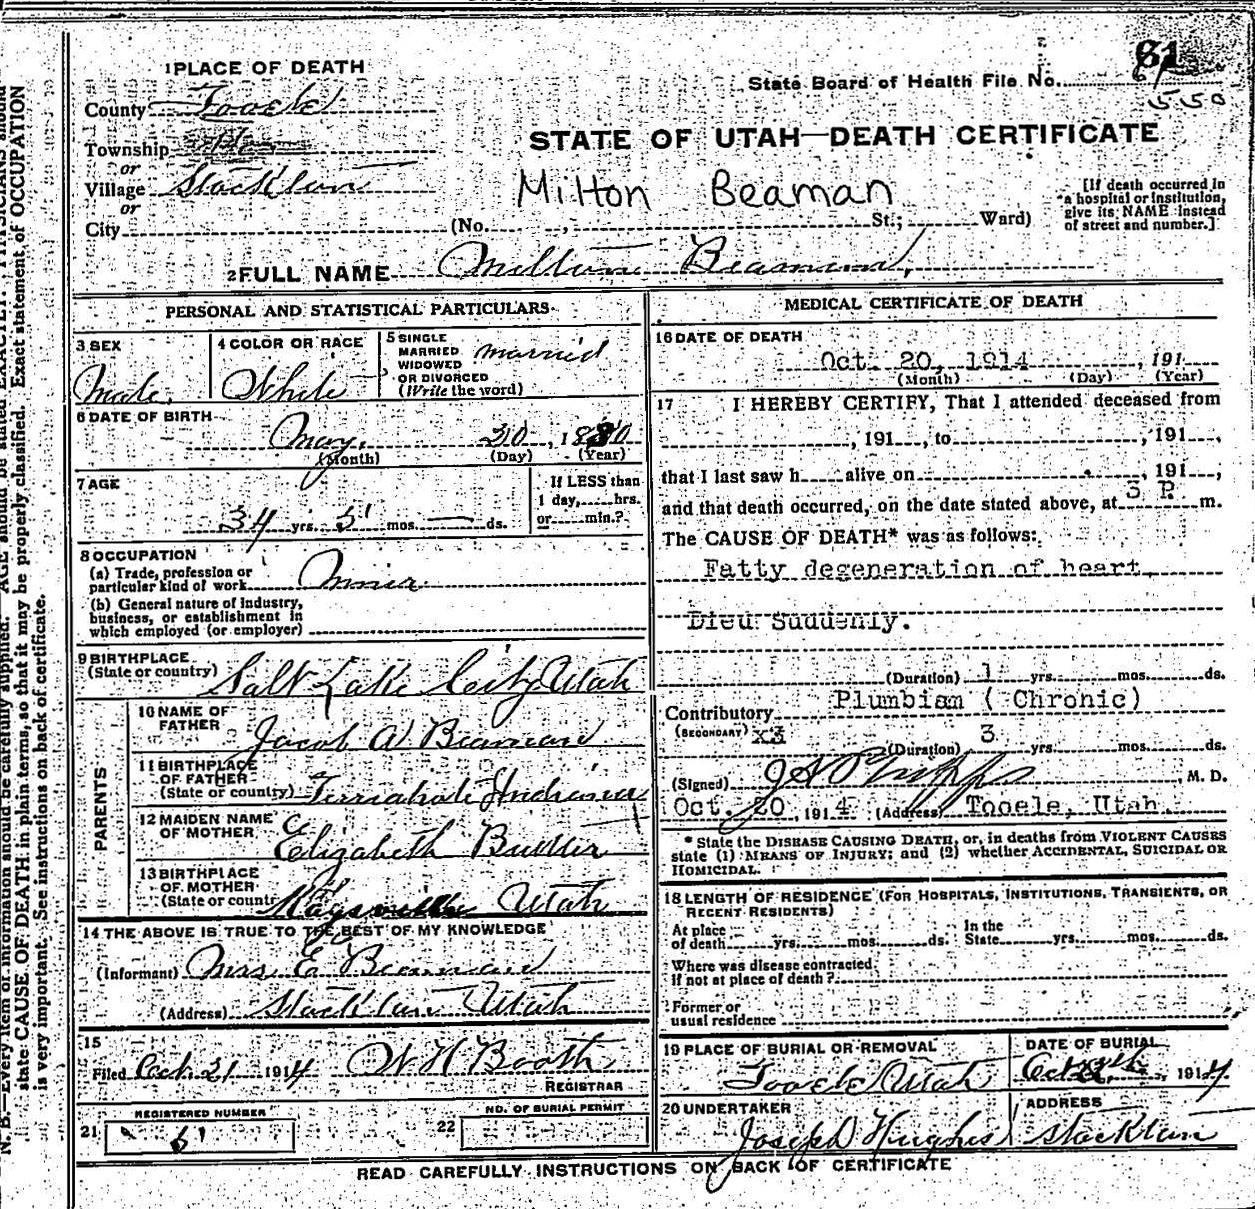 1 PLACE OF DEATH
County Tooele
Township
or
Village Stockton
or
City
State Board of Health File No. 61
550
STATE OF UTAH—DEATH CERTIFICATE
Milton Beaman
(No. , St.; Ward)
[If death occurred in
a hospital or institution,
give its NAME instead
of street and number.]
2 FULL NAME Milton Beaman,
PERSONAL AND STATISTICAL PARTICULARS
3 SEX
Male.
4 COLOR OR RACE
White
5 SINGLE
MARRIED
WIDOWED
OR DIVORCED
(Write the word)
married
6 DATE OF BIRTH
May. 20, 1880
(Month) (Day) (Year)
7 AGE
34 yrs. 5 mos. — ds.
If LESS than
1 day, hrs.
or min.?
8 OCCUPATION
(a) Trade, profession or
particular kind of work Miner
(b) General nature of industry,
business, or establishment in
which employed (or employer)
9 BIRTHPLACE
(State or country) Salt Lake City Utah
PARENTS
10 NAME OF
FATHER
Jacob A Beaman
11 BIRTHPLACE
OF FATHER
(State or country) Terrahute Indiana
12 MAIDEN NAME
OF MOTHER
Elizabeth Butler
13 BIRTHPLACE
OF MOTHER
(State or country) Kaysville Utah
14 THE ABOVE IS TRUE TO THE BEST OF MY KNOWLEDGE
(Informant) Mrs E Beaman
(Address) Stockton Utah
15
Filed Oct. 21 1914 W H Booth,
REGISTRAR
21 REGISTERED NUMBER
6
22 NO. OF BURIAL PERMIT
MEDICAL CERTIFICATE OF DEATH
16 DATE OF DEATH
Oct. 20, 1914, 191
(Month) (Day) (Year)
17 I HEREBY CERTIFY, That I attended deceased from
, 191 , to , 191 ,
that I last saw h alive on , 191 ,
and that death occurred, on the date stated above, at 3 P. m.
The CAUSE OF DEATH* was as follows:
Fatty degeneration of heart
Died Suddenly.
(Duration) 1 yrs. mos. ds.
Contributory Plumbism ( Chronic)
(SECONDARY) x3
(Duration) 3 yrs. mos. ds.
(Signed) J A Phipps, M. D.
Oct. 20, 1914 (Address) Tooele, Utah.
* State the DISEASE CAUSING DEATH, or, in deaths from VIOLENT CAUSES
state (1) MEANS OF INJURY; and (2) whether ACCIDENTAL, SUICIDAL OR
HOMICIDAL.
18 LENGTH OF RESIDENCE (FOR HOSPITALS, INSTITUTIONS, TRANSIENTS, OR
RECENT RESIDENTS)
At place
of death yrs. mos. ds.
In the
State yrs. mos. ds.
Where was disease contracted,
if not at place of death?
Former or
usual residence
19 PLACE OF BURIAL OR REMOVAL
Tooele Utah
DATE OF BURIAL
Oct , 1914
20 UNDERTAKER
Joseph Hughes
ADDRESS
Stockton
READ CAREFULLY INSTRUCTIONS ON BACK OF CERTIFICATE
N. B.—Every item of information should be carefully supplied. AGE should be stated EXACTLY. PHYSICIANS should
state CAUSE OF DEATH in plain terms, so that it may be properly classified. Exact statement of OCCUPATION
is very important. See instructions on back of certificate.